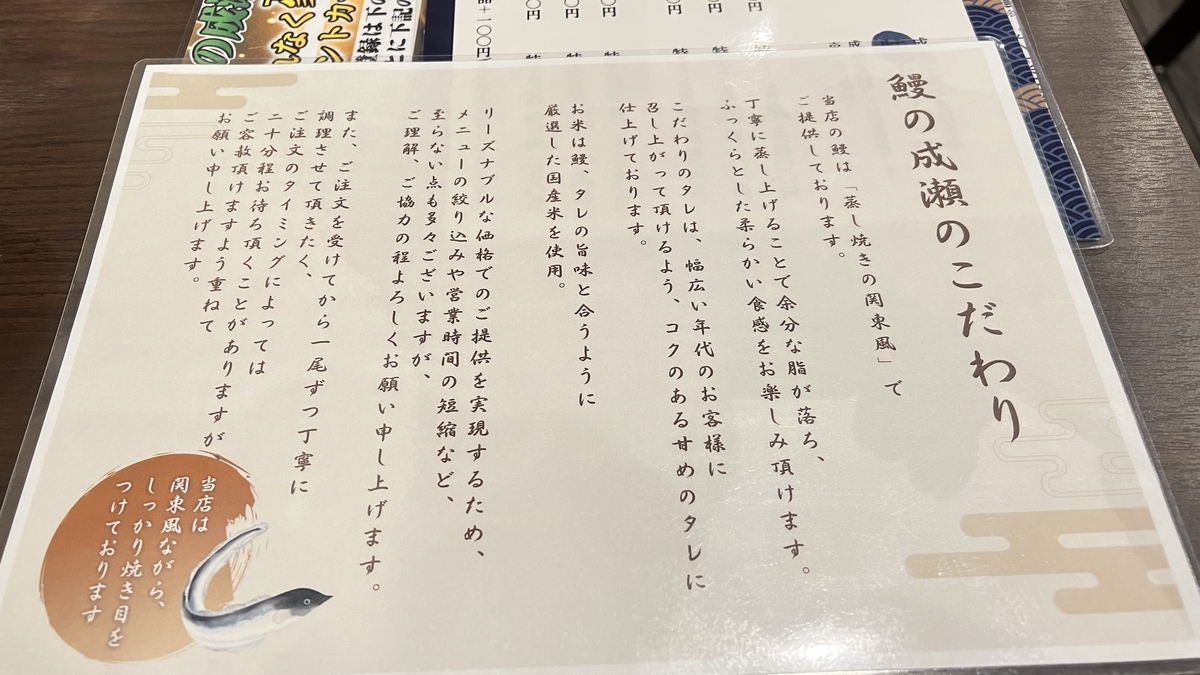 鰻の成瀬のこだわり
当店の鰻は「蒸し焼きの関東風」で
ご提供しております。
丁寧に蒸し上げることで余分な脂が落ち、
ふっくらとした柔らかい食感をお楽しみ頂けます。
こだわりのタレは、幅広い年代のお客様に
召し上がって頂けるよう、コクのある甘めのタレに
仕上げております。
お米は鰻、タレの旨味と合うように
厳選した国産米を使用。
リーズナブルな価格でのご提供を実現するため、
メニューの絞り込みや営業時間の短縮など、
至らない点も多々ございますが、
ご理解、ご協力の程よろしくお願い申し上げます。
また、ご注文を受けてから一尾ずつ丁寧に
調理させて頂きたく、
ご注文のタイミングによっては
二十分程お待ち頂くことがありますが
ご容赦頂けますよう重ねて
お願い申し上げます。
当店は
関東風ながら、
しっかり焼き目を
つけております